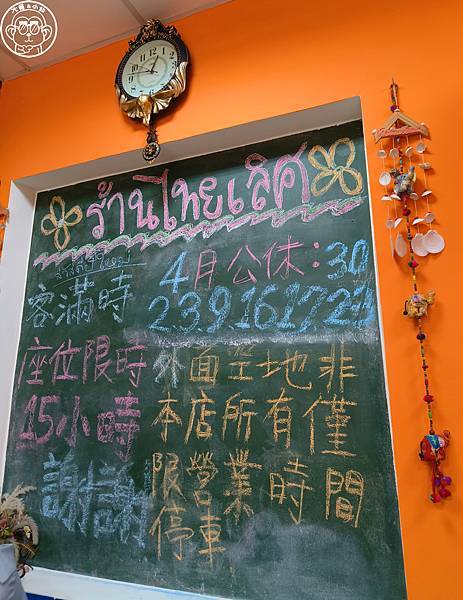 ร้านไทยเลิศ
สวัสดีปีใหม่
4月公休:30
2.3.9.16.17.23
客滿時
座位限時
1.5小時
謝謝
外面空地非
本店所有僅
限營業時間
停車